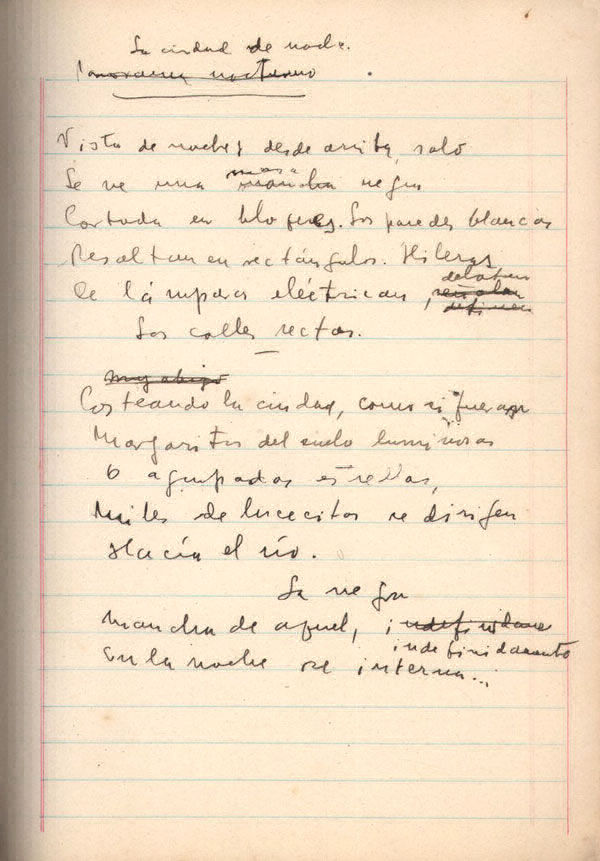 La ciudad de noche.
Panorama nocturno
Vista de noche, desde arriba, solo
Se ve una mancha masa negra
Cortada en bloques. Las paredes blancas
Resaltan en rectángulos. Hileras
De lámparas eléctricas, señalan definen delatan
Las calles rectas.
muy abajo
Costeando la ciudad, como si fueran
Margaritas del suelo luminosas
ó agrupadas estrellas,
Miles de lucecitas se dirigen
Hacia el río.
La negra
mancha de aquel, indefinidamente
indefinidamente
en la noche se interna...